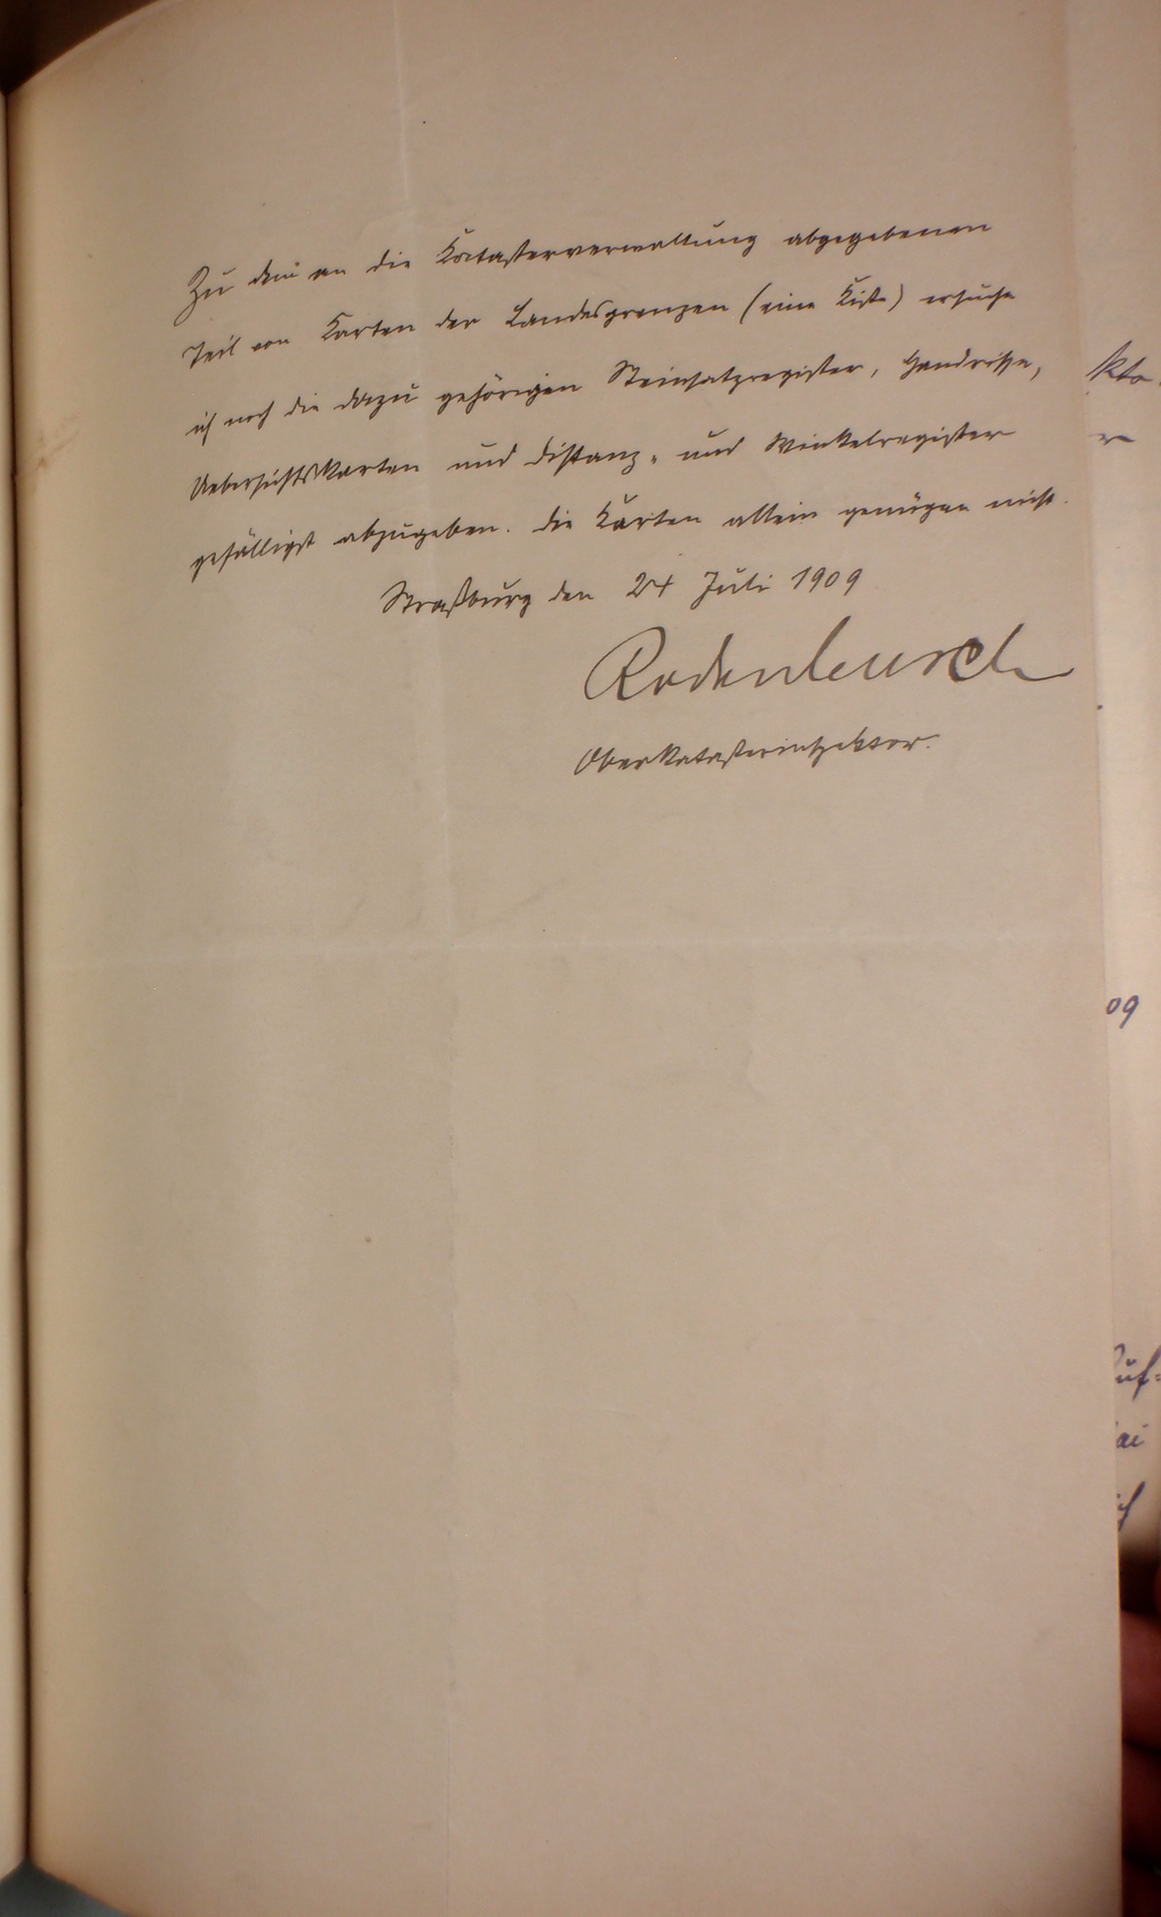 Zu dem an die Katasterverwaltung abgegebenen
Teil von Karten der Landesgrenzen (eine Kiste) ersuche
ich noch die dazu gehörigen Steinsatzregister, Handrisse,
Uebersichtskarten und Distanz- und Winkelregister
gefälligst abzugeben. Die Karten allein genügen nicht.
Straßburg den 24 Juli 1909
Rodenbusch
Oberkatasterinspektor.
09